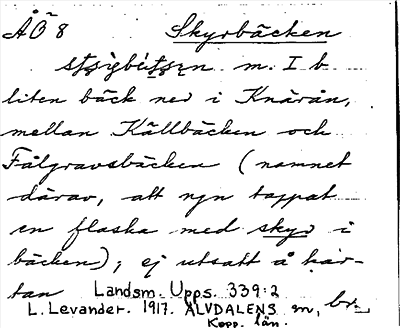 ÅÖ 8 Skyrbäcken
m. I b
liten bäck ned i Knärån,
mellan Källbäcken och
Fålgravsbäcken (namnet
därav, att ngn tappat
en flaska med skyr i
bäcken); ej utsatt å kar-
tan Landsm. Upps. 339:2
L. Levander. 1917. ÄLVDALENS sn, br.
Kopp. län